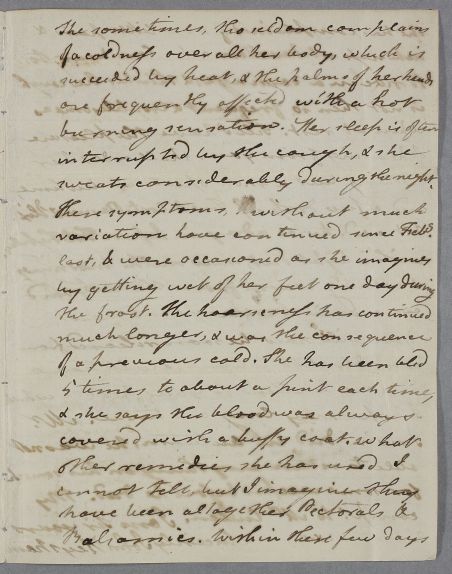 She sometimes, tho seldom complains
of a coldness over all her body, which is
succeeded by heat, & the palms of her hands
are frequently affected with a hot
burning sensation. Her sleep is often
interrupted by the cough, & she
sweats considerably during the night.
These symptoms, without much
variation have continued since Feb.
last, & were occasioned as she imagines
by getting wet of her feet one day during
the frost. The hoarseness has continued
much longer, & was the consequence
of a previous cold. She has been bled
5 times to about a pint each time,
& she says the blood was always
covered with a buffy coat, what
other remedies she has used I
cannot tell, but I imagine they
have been altogether Pectorals &
Balsamics. Within these few days